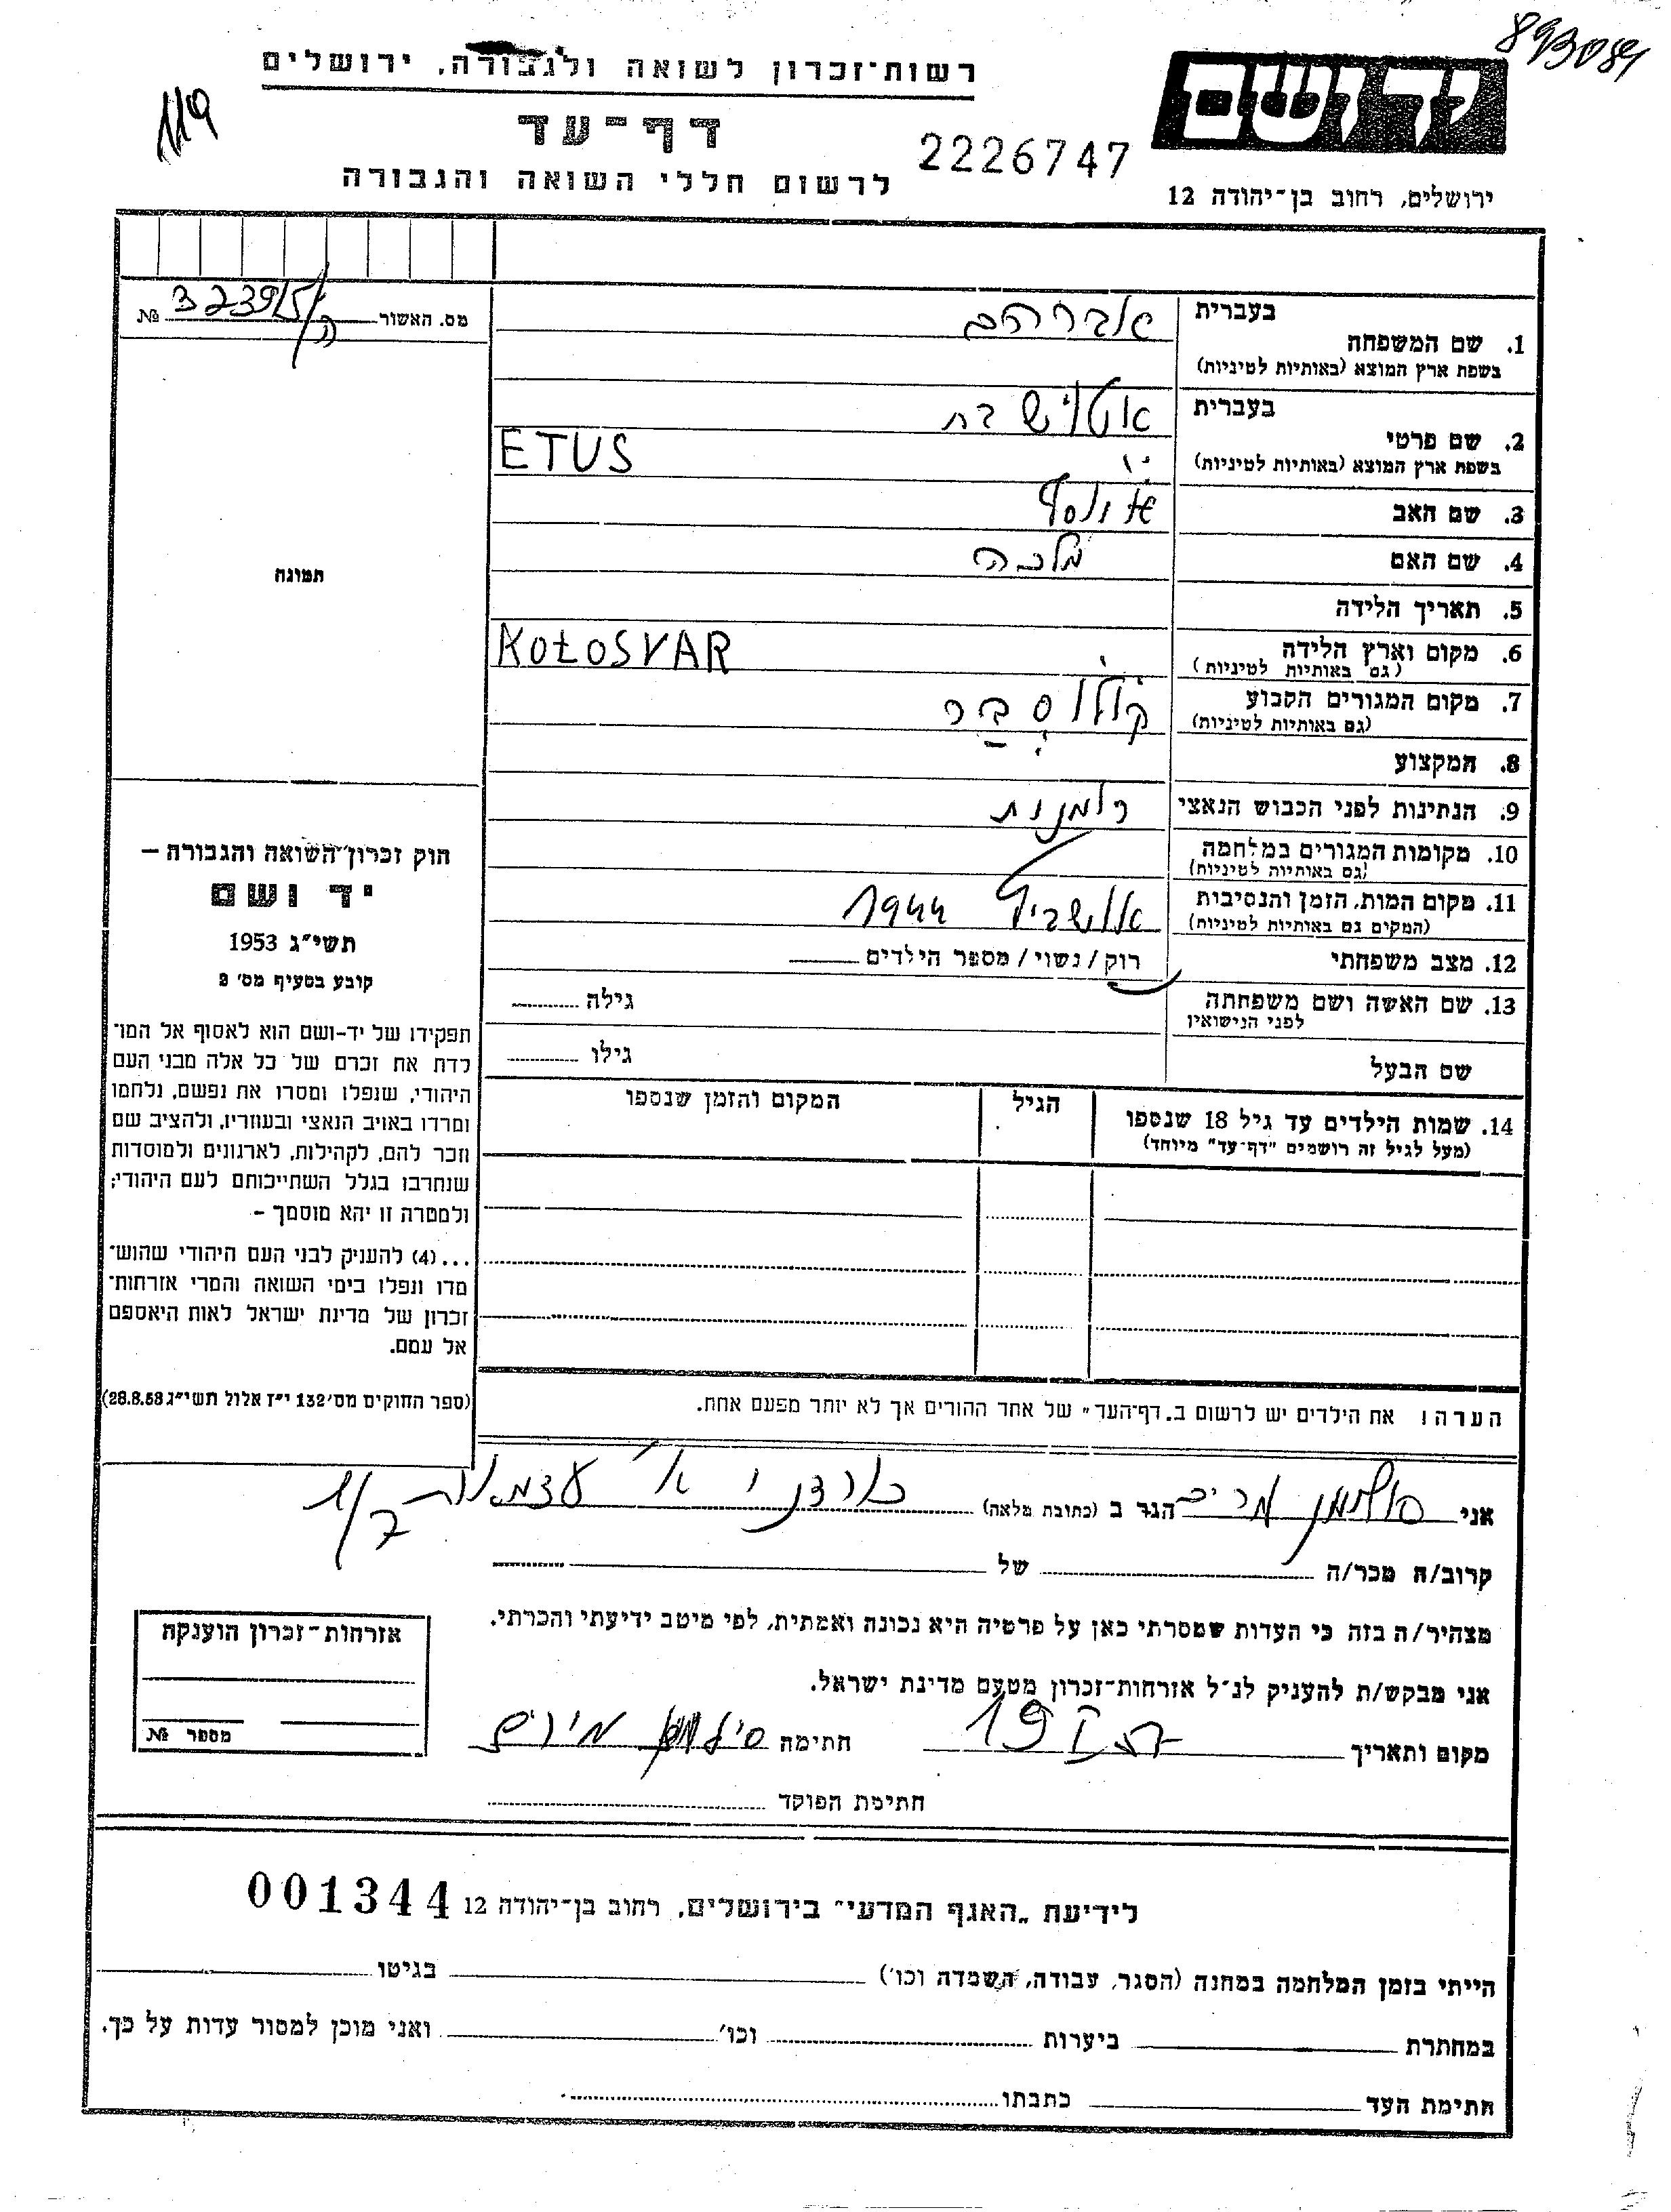 893084
רשות-זכרון לשואה ולגבורה, ירושלים
119
יד ושם
דף-עד
2226747
לרשום חללי השואה והגבורה
ירושלים, רחוב בן-יהודה 12
מס. האשור 32395/ №
1. שם המשפחה בעברית אברהם
בשפת ארץ המוצא (באותיות לטיניות)
2. שם פרטי בעברית בת
בשפת ארץ המוצא (באותיות לטיניות) ETUS
3. שם האב יוסף
4. שם האם מלכה
תמונה
5. תאריך הלידה
6. מקום וארץ הלידה KOŁOSVAR
(גם באותיות לטיניות)
7. מקום המגורים הקבוע קולוסבר
(גם באותיות לטיניות)
8. המקצוע
9. הנתינות לפני הכבוש הנאצי רומנית
10. מקומות המגורים במלחמה
(גם באותיות לטיניות)
11. מקום המות, הזמן והנסיבות אושביץ 1944
(המקום גם באותיות לטיניות)
12. מצב משפחתי רוק / נשוי / מספר הילדים
13. שם האשה ושם משפחתה גילה
לפני הנישואין
שם הבעל גילו
14. שמות הילדים עד גיל 18 שנספו הגיל המקום והזמן שנספו
(מעל לגיל זה רושמים "דף-עד" מיוחד)
חוק זכרון השואה והגבורה –
יד ושם
תשי"ג 1953
קובע בסעיף מס' 2
תפקידו של יד-ושם הוא לאסוף אל המו-
לדת את זכרם של כל אלה מבני העם
היהודי, שנפלו ומסרו את נפשם, נלחמו
ומרדו באויב הנאצי ובעוזריו, ולהציב שם
וזכר להם, לקהילות, לארגונים ולמוסדות
שנחרבו בגלל השתייכותם לעם היהודי;
ולמטרה זו יהא מוסמך –
...(4) להעניק לבני העם היהודי שהוש-
מדו ונפלו בימי השואה והמרי אזרחות-
זכרון של מדינת ישראל לאות היאספם
אל עמם.
(ספר החוקים מס' 132 י"ז אלול תשי"ג 28.8.53)
הערה: את הילדים יש לרשום ב"דף-העד" של אחד ההורים אך לא יותר מפעם אחת.
אני מרים הגר ב (כתובת מלאה) עצמאות
קרוב/ה מכר/ה של
מצהיר/ה בזה כי העדות שמסרתי כאן על פרטיה היא נכונה ואמתית, לפי מיטב ידיעתי והכרתי.
אני מבקש/ת להעניק לנ"ל אזרחות-זכרון מטעם מדינת ישראל.
מקום ותאריך חתימה מירים
חתימת הפוקד
אזרחות-זכרון הוענקה
מספר №
לידיעת "האגף המדעי" בירושלים, רחוב בן-יהודה 12 001344
הייתי בזמן המלחמה במחנה (הסגר, עבודה, השמדה וכו') בגיטו
במחתרת ביערות וכו' ואני מוכן למסור עדות על כך.
חתימת העד כתבתו